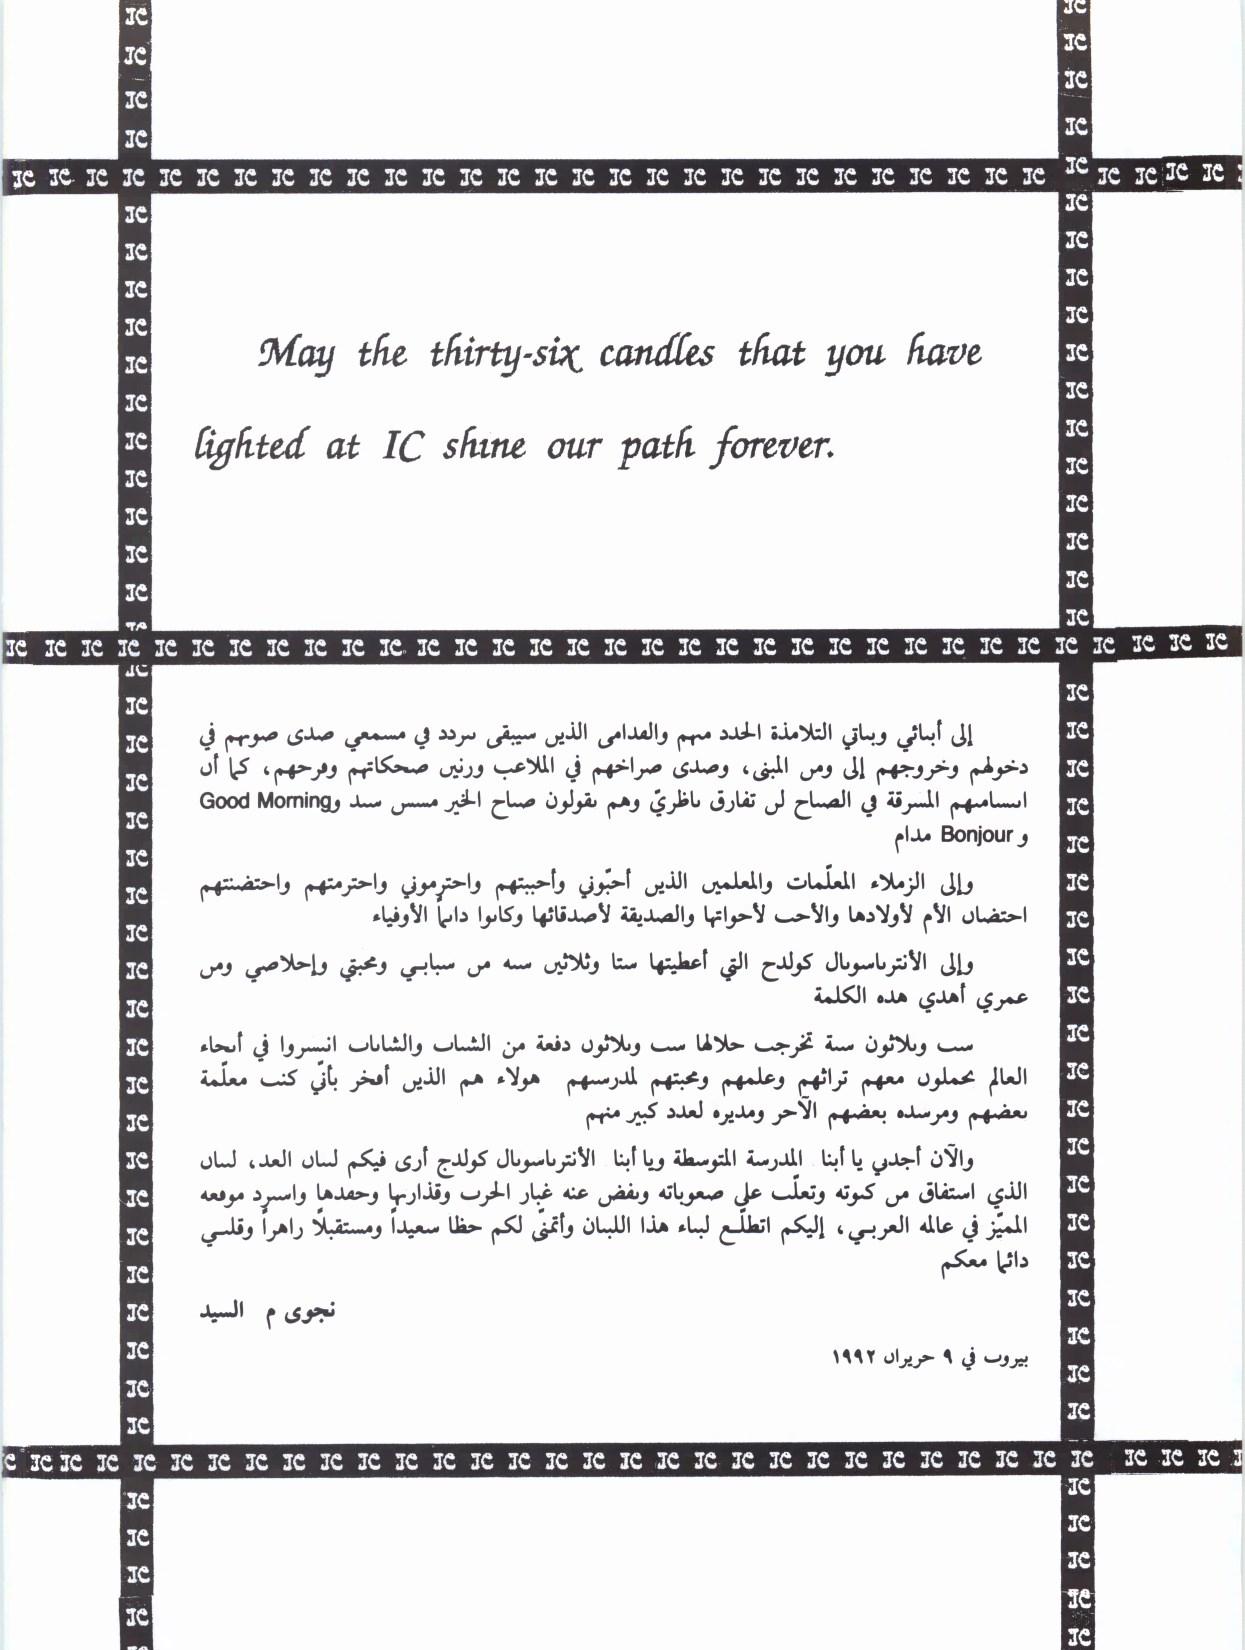 May the thirty-six candles that you have
lighted at IC shine our path forever.
إلى أبنائي وبناتي التلاميذ الجدد منهم والقدامى الذين سيبقى يتردد في مسمعي صدى صوتهم في
دخولهم وخروجهم إلى ومن المبنى، وصدى صراخهم في الملاعب ورنين ضحكاتهم وفرحهم، كما أن
ابتساماتهم المشرقة في الصباح لن تفارق ناظريّ وهم يقولون صباح الخير مسس سيد وGood Morning
و Bonjour مدام
وإلى الزملاء المعلّمات والمعلمين الذين أحبّوني وأحببتهم واحترموني واحترمتهم واحتضنتهم
احتضان الأم لأولادها والأخت لأخواتها والصديقة لأصدقائها وكانوا دائماً الأوفياء
وإلى الأنترناسيونال كولدج التي أعطيتها ستا وثلاثين سنة من شبابي ومحبتي وإخلاصي ومن
عمري أهدي هذه الكلمة
ست وثلاثون سنة تخرجت خلالها ست وثلاثون دفعة من الشباب والشابات انتشروا في أنحاء
العالم يحملون معهم تراثهم وعلمهم ومحبتهم لمدرستهم هولاء هم الذين أفخر بأنّي كنت معلّمة
بعضهم ومرشدة بعضهم الآخر ومديرة لعدد كبير منهم
والآن أجدني يا أبنا المدرسة المتوسطة ويا أبنا الأنترناسيونال كولدج أرى فيكم لبنان الغد، لبنان
الذي استفاق من كبوته وتغلّب على صعوباته ونفض عنه غبار الحرب وقذارتها وحقدها واسترد موقعه
المميّز في عالمه العربي، إليكم اتطلّع لبناء هذا اللبنان وأتمنّى لكم حظا سعيداً ومستقبلاً زاهراً وقلبي
دائما معكم
نجوى م السيد
بيروت في ٩ حزيران ١٩٩٢